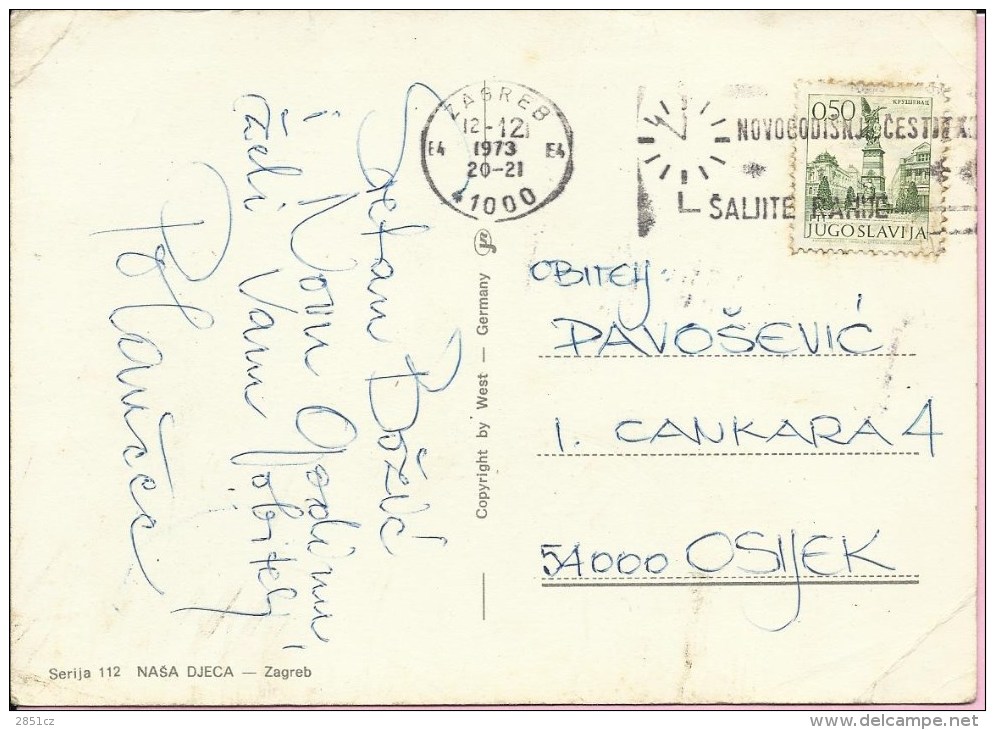 Sretan Božić
i Novu Godinu,
želi Vam obitelj
ZAGREB
12-12
E4 1973 E4
20-21
41000
NOVOGODIŠNJE ČESTITKE
ŠALJITE RANIJE
КРУШЕВАЦ
0,50
JUGOSLAVIJA
OBITELJ
PAVOŠEVIĆ
I. CANKARA 4
54000 OSIJEK
Copyright by West — Germany
Serija 112 NAŠA DJECA — Zagreb
2851cz
http://www.delcampe.net